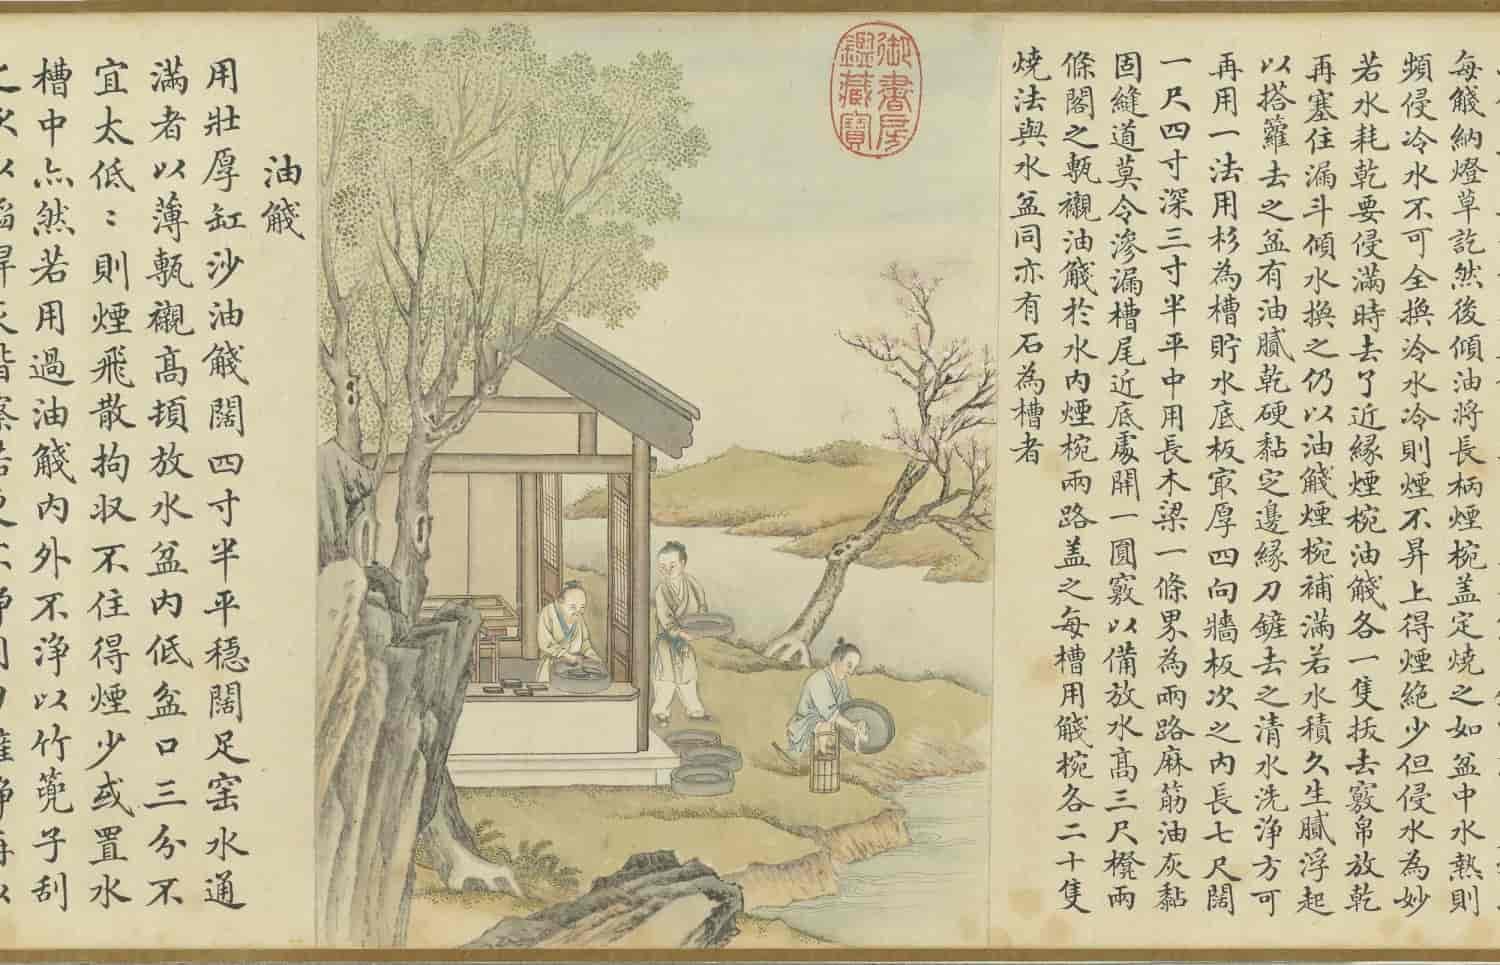 每盞納燈草訖然後傾油將長柄煙椀盖定燒之如盆中水熱則
頻侵冷水不可全換冷水冷則煙不昇上得煙絶少但侵水為妙
若水耗乾要侵滿時去了近緣煙椀油盞各一隻拔去竅帛放乾
再塞住漏斗傾水換之仍以油盞煙椀補滿若水積久生膩浮起
以搭籮去之盆有油膩乾硬黏定邊緣刀鏟去之清水洗浄方可
再用一法用杉為槽貯水底板㝡厚四向牆板次之内長七尺闊
一尺四寸深三寸半平中用長木梁一條界為兩路麻筋油灰黏
固縫道莫令滲漏槽尾近底處開一圓竅以備放水高三尺櫈兩
條閣之甎襯油盞於水内煙椀兩路盖之每槽用盞椀各二十隻
燒法與水盆同亦有石為槽者
御書房
鑑藏寶
油盞
用壯厚缸沙油盞闊四寸半平穩闊足窑水通
滿者以薄甎襯高頓放水盆内低盆口三分不
宜太低：則煙飛散拘収不住得煙少或置水
槽中亦然若用過油盞内外不浄以竹篦子刮